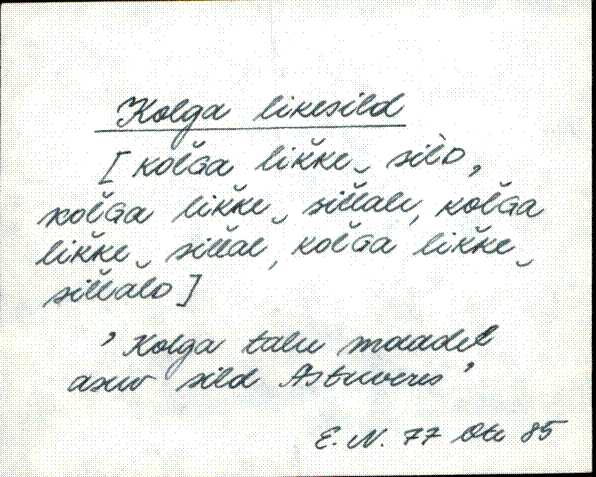 Kolga likesild
[ kol̆ɢa lik̆ke‿ sil̀ᴅ,
kol̆ɢa lik̆ke‿ sil̆lale, kol̆ɢa
lik̆ke‿ sil̆lal, kol̆ɢa lik̆ke‿
sil̆lalᴅ ]
' Kolga talu maadel
asuv sild Astuveres '
E. N. 77 Ote 85